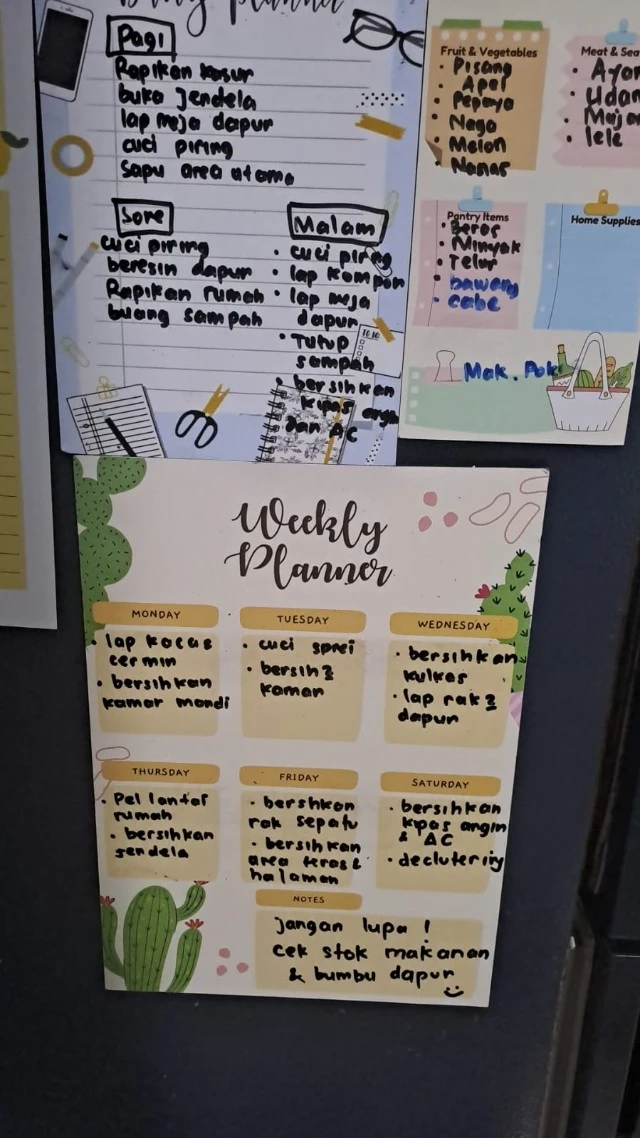 Planner
Pagi
Rapikan kasur
buka Jendela
lap meja dapur
cuci piring
sapu area utama
Sore
cuci piring
beresin dapur
Rapikan rumah
buang sampah
Malam
• cuci piring
• lap kompor
• lap meja
dapur
• Tutup
sampah
• bersihkan
kipas angin
dan AC
10.10
Fruit & Vegetables
• Pisang
• Apel
• Pepaya
• Naga
• Melon
• Nanas
Meat & Sea
• Aya
• Udan
• lele
Pantry Items
• Beras
• Minyak
• Telur
• bawang
• cabe
Home Supplies
Mak. Pok
Weekly
Planner
MONDAY
lap kacas
cermin
• bersihkan
kamar mandi
TUESDAY
• cuci sprei
• bersih2
kamar
WEDNESDAY
• bersihkan
kulkas
• lap rak2
dapur
THURSDAY
• Pel lantai
rumah
• bersihkan
jendela
FRIDAY
• bershkan
rak sepatu
• bersihkan
area teras &
halaman
SATURDAY
• bersihkan
kipas angin
& AC
• decluttering
NOTES
Jangan lupa !
cek stok makanan
& bumbu dapur